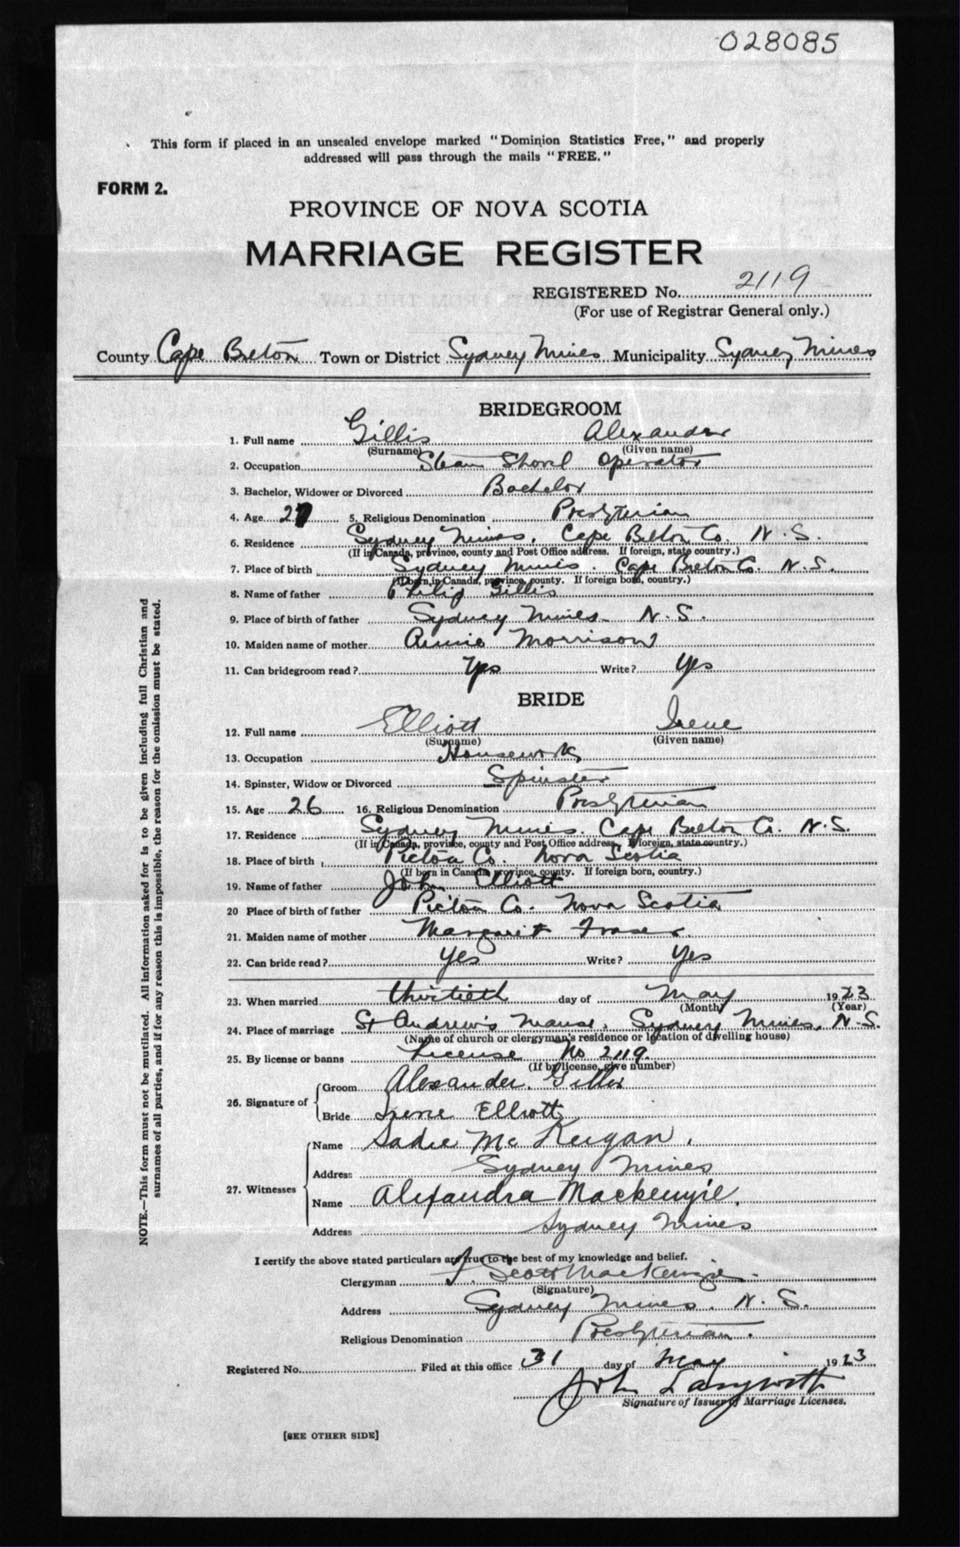 028085
This form if placed in an unsealed envelope marked "Dominion Statistics Free," and properly
addressed will pass through the mails "FREE."
FORM 2.
PROVINCE OF NOVA SCOTIA
MARRIAGE REGISTER
REGISTERED No. 2119
(For use of Registrar General only.)
County Cape Breton Town or District Sydney Mines Municipality Sydney Mines
BRIDEGROOM
1. Full name Gillis Alexander
(Surname) (Given name)
2. Occupation Steam Shovel Operator
3. Bachelor, Widower or Divorced Bachelor
4. Age 27 5. Religious Denomination Presbyterian
6. Residence Sydney Mines, Cape Breton Co. N.S.
(If in Canada, province, county and Post Office address. If foreign, state country.)
7. Place of birth Sydney Mines. Cape Breton Co. N.S.
(If born in Canada, province, county. If foreign born, country.)
8. Name of father Philip Gillis
9. Place of birth of father Sydney Mines N.S.
10. Maiden name of mother Annie Morrison
11. Can bridegroom read? Yes Write? Yes
BRIDE
12. Full name Elliott Irene
(Surname) (Given name)
13. Occupation Housework
14. Spinster, Widow or Divorced Spinster
15. Age 26 16. Religious Denomination Presbyterian
17. Residence Sydney Mines. Cape Breton Co. N.S.
(If in Canada, province, county and Post Office address. If foreign, state country.)
18. Place of birth Pictou Co. Nova Scotia
(If born in Canada province, county. If foreign born, country.)
19. Name of father John Elliott
20 Place of birth of father Pictou Co. Nova Scotia
21. Maiden name of mother Margaret Fraser
22. Can bride read? Yes Write? Yes
23. When married thirtieth day of May 1923
(Month) (Year)
24. Place of marriage St Andrew's Manse, Sydney Mines, N.S.
(Name of church or clergyman's residence or location of dwelling house)
25. By license or banns License No 2119.
(If by license, give number)
26. Signature of Groom Alexander Gillis
Bride Irene Elliott
27. Witnesses Name Sadie McKeigan.
Address Sydney Mines
Name Alexandra Mackenzie.
Address Sydney Mines
I certify the above stated particulars are true to the best of my knowledge and belief.
Clergyman J. Scott MacKenzie.
(Signature)
Address Sydney Mines. N.S.
Religious Denomination Presbyterian.
Registered No. Filed at this office 31 day of May 1923
John Langwith
Signature of Issuer of Marriage Licenses.
[SEE OTHER SIDE]
NOTE.—This form must not be mutilated. All information asked for is to be given including full Christian and
surnames of all parties, and if for any reason this is impossible, the reason for the omission must be stated.